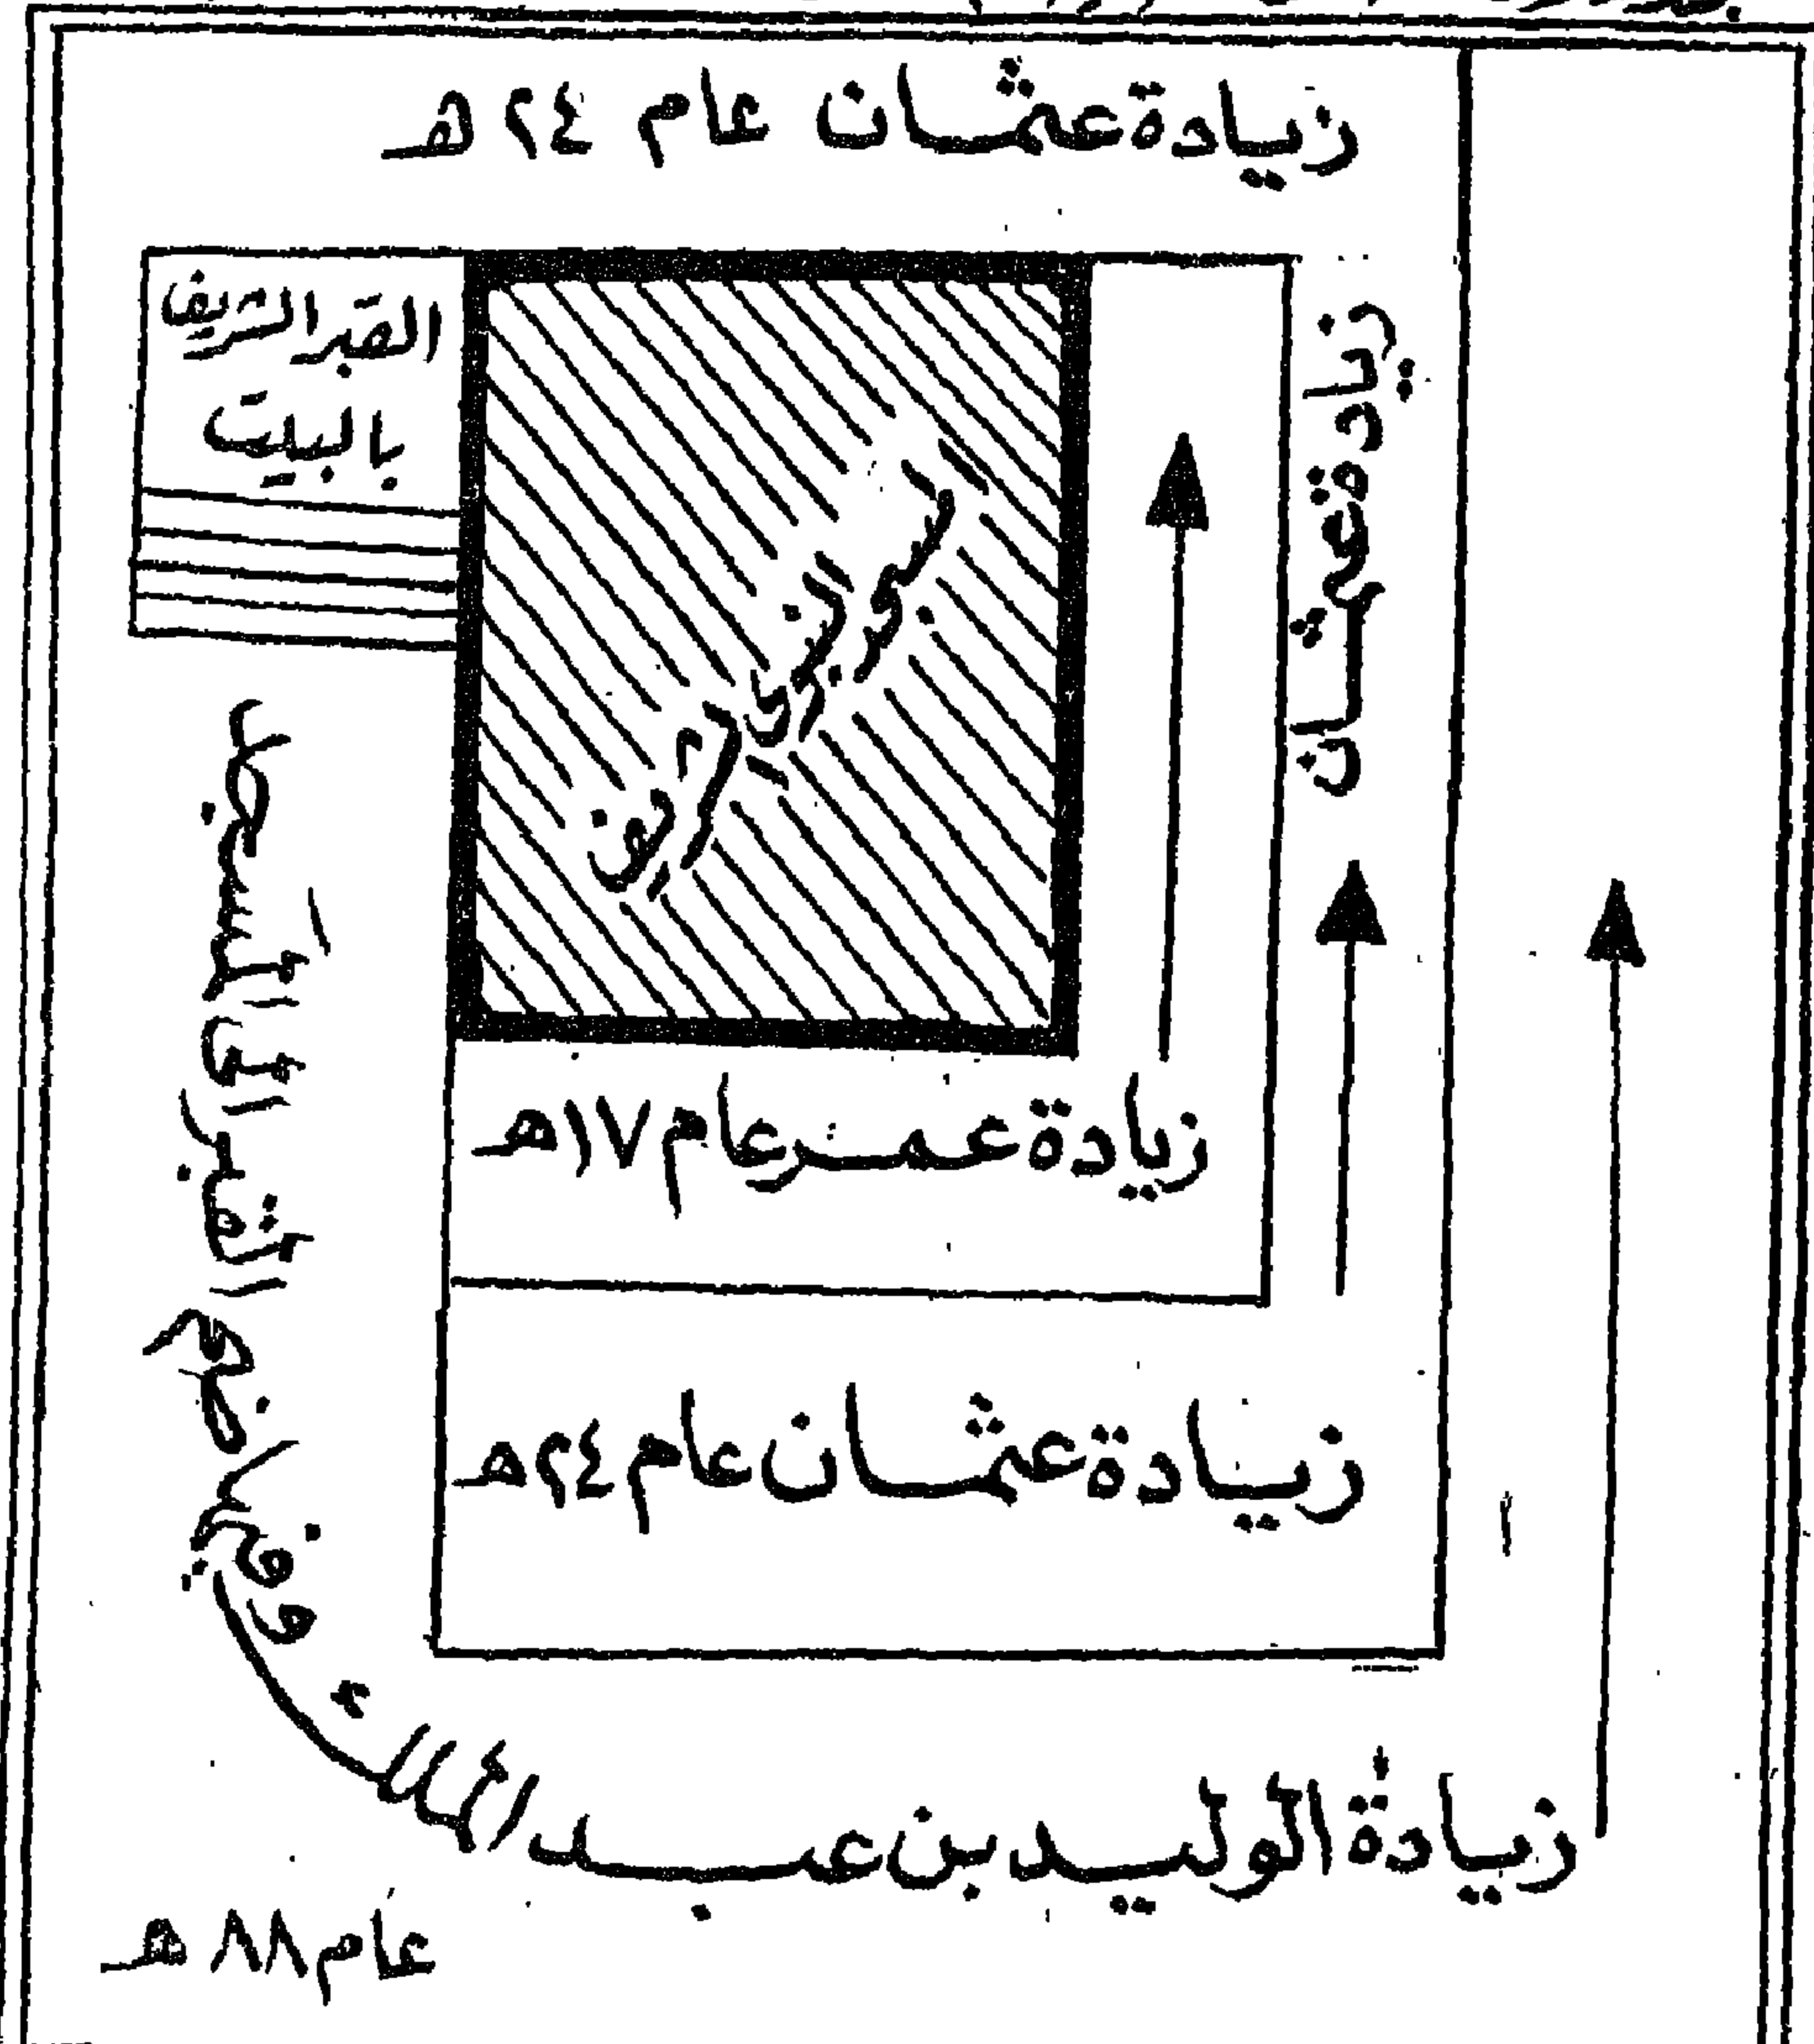 زيادة عثمان عام ٢٤ هـ
القبر الشريف
بالبيت
زيادة عثمان
زيادة عمر عام ١٧ هـ
زيادة عثمان عام ٢٤ هـ
زيادة الوليد بن عبد الملك
القبر إلى المسجد
عام ٨٨ هـ